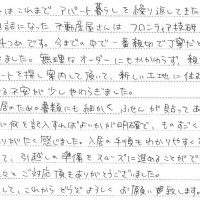 はこれまで アパート暮しを繰り返してきた
話になった 不動産屋さんは フロンティア技研
つめです。今までの中で一番親切で丁寧だと
ました。無理なオーダーにもかかわらず、親
ートを探し案内して頂いて、新しい土地に住む
る不安が少しやわらぎました。
居のための書類にも細かく ふせんが貼ってあ
に何を記入すればよいかが明確で、ものすごく
りがたく感じました。入居の手順もわかりやすく
て、引越しの準備をスムーズに進めることがで
ご対応頂きありがとうございました。
して、これから どうぞよろしく お願い致します。